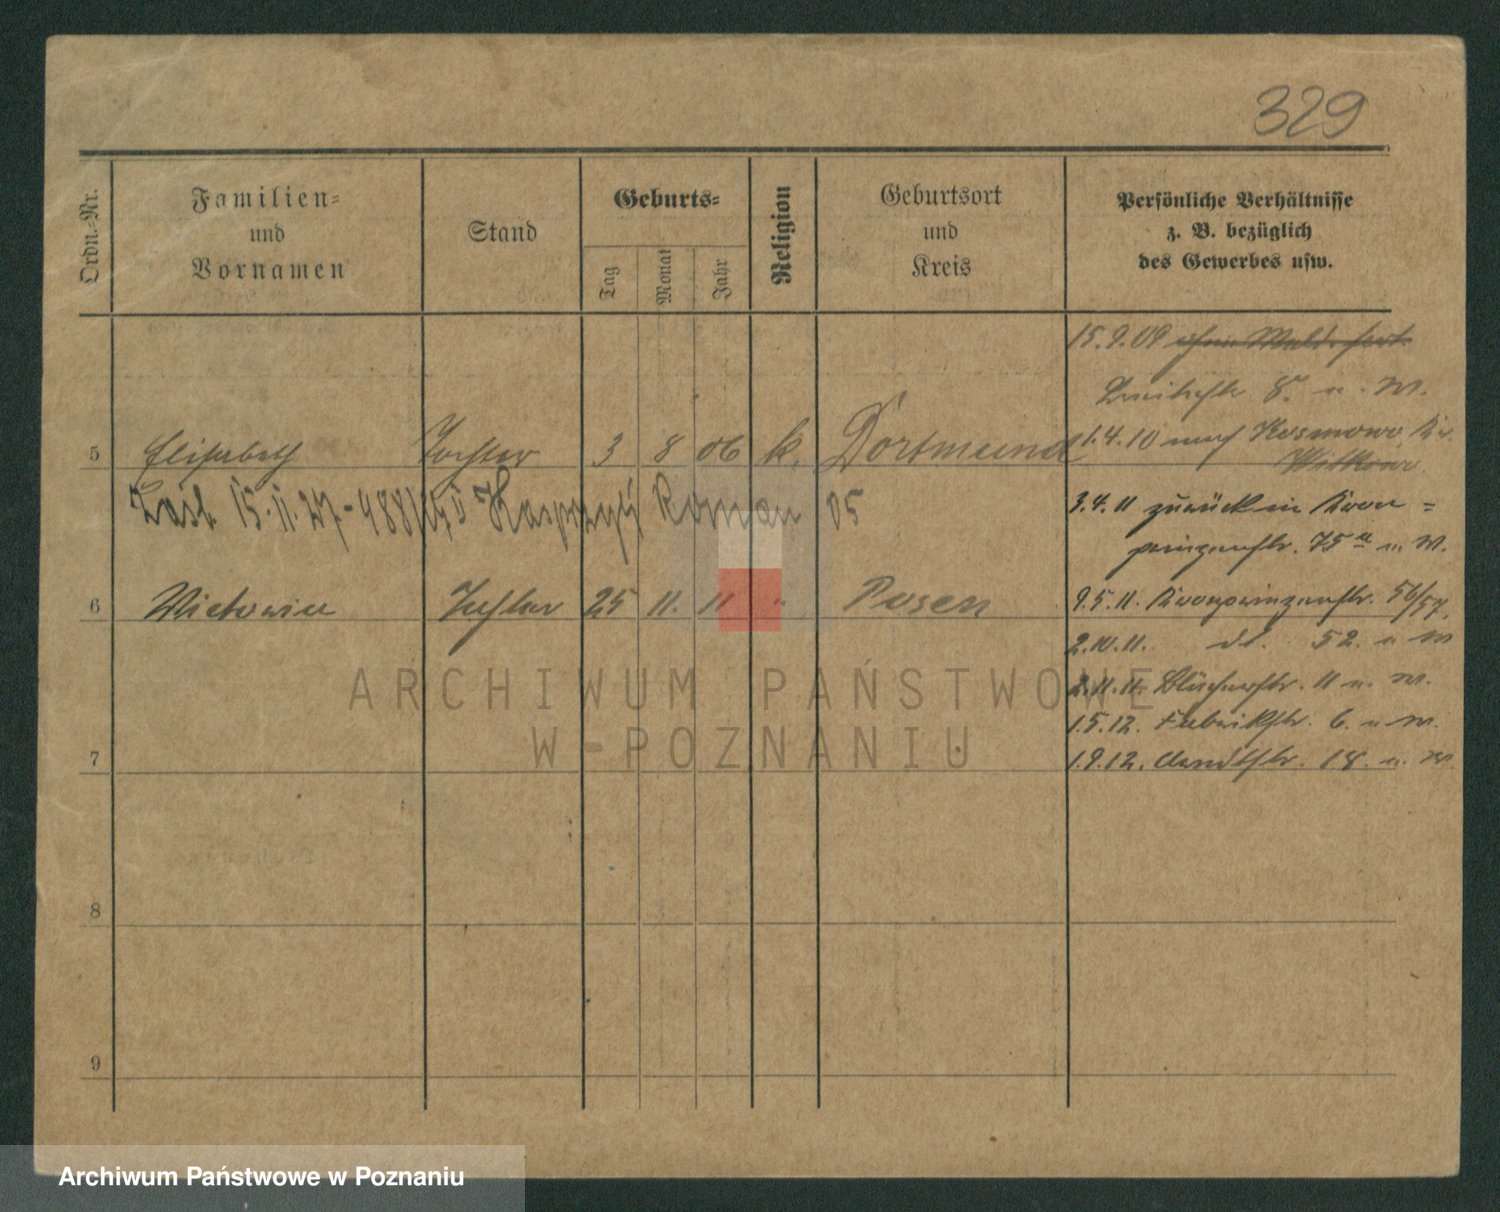 329
Ordn.-Nr.
Familien-
und
Vornamen
Stand
Geburts-
Tag
Monat
Jahr
Religion
Geburtsort
und
Kreis
Persönliche Verhältnisse
z. B. bezüglich
des Gewerbes usw.
15.9.09
8. u. W.
5 Elisabeth Tochter 3 8 06 k. Dortmund
1.4.10 nach Kosmowo Kr.
Witkowo
15.11.27 - Kasprzyk Roman 05
3.4.11 zurück in Kron=
prinzenstr. 75a u. W.
6 Tochter 25 11. 11 " Posen
9.5.11. Kronprinzenstr. 56/57.
2.10.11. do. 52. u. W
2.11.11. Blücherstr. 11 u. W.
1.5.12. Fabrikstr. 6. u. W.
7
1.9.12. Arndtstr. 18. u. W.
8
9
ARCHIWUM PAŃSTWOWE
W POZNANIU
Archiwum Państwowe w Poznaniu